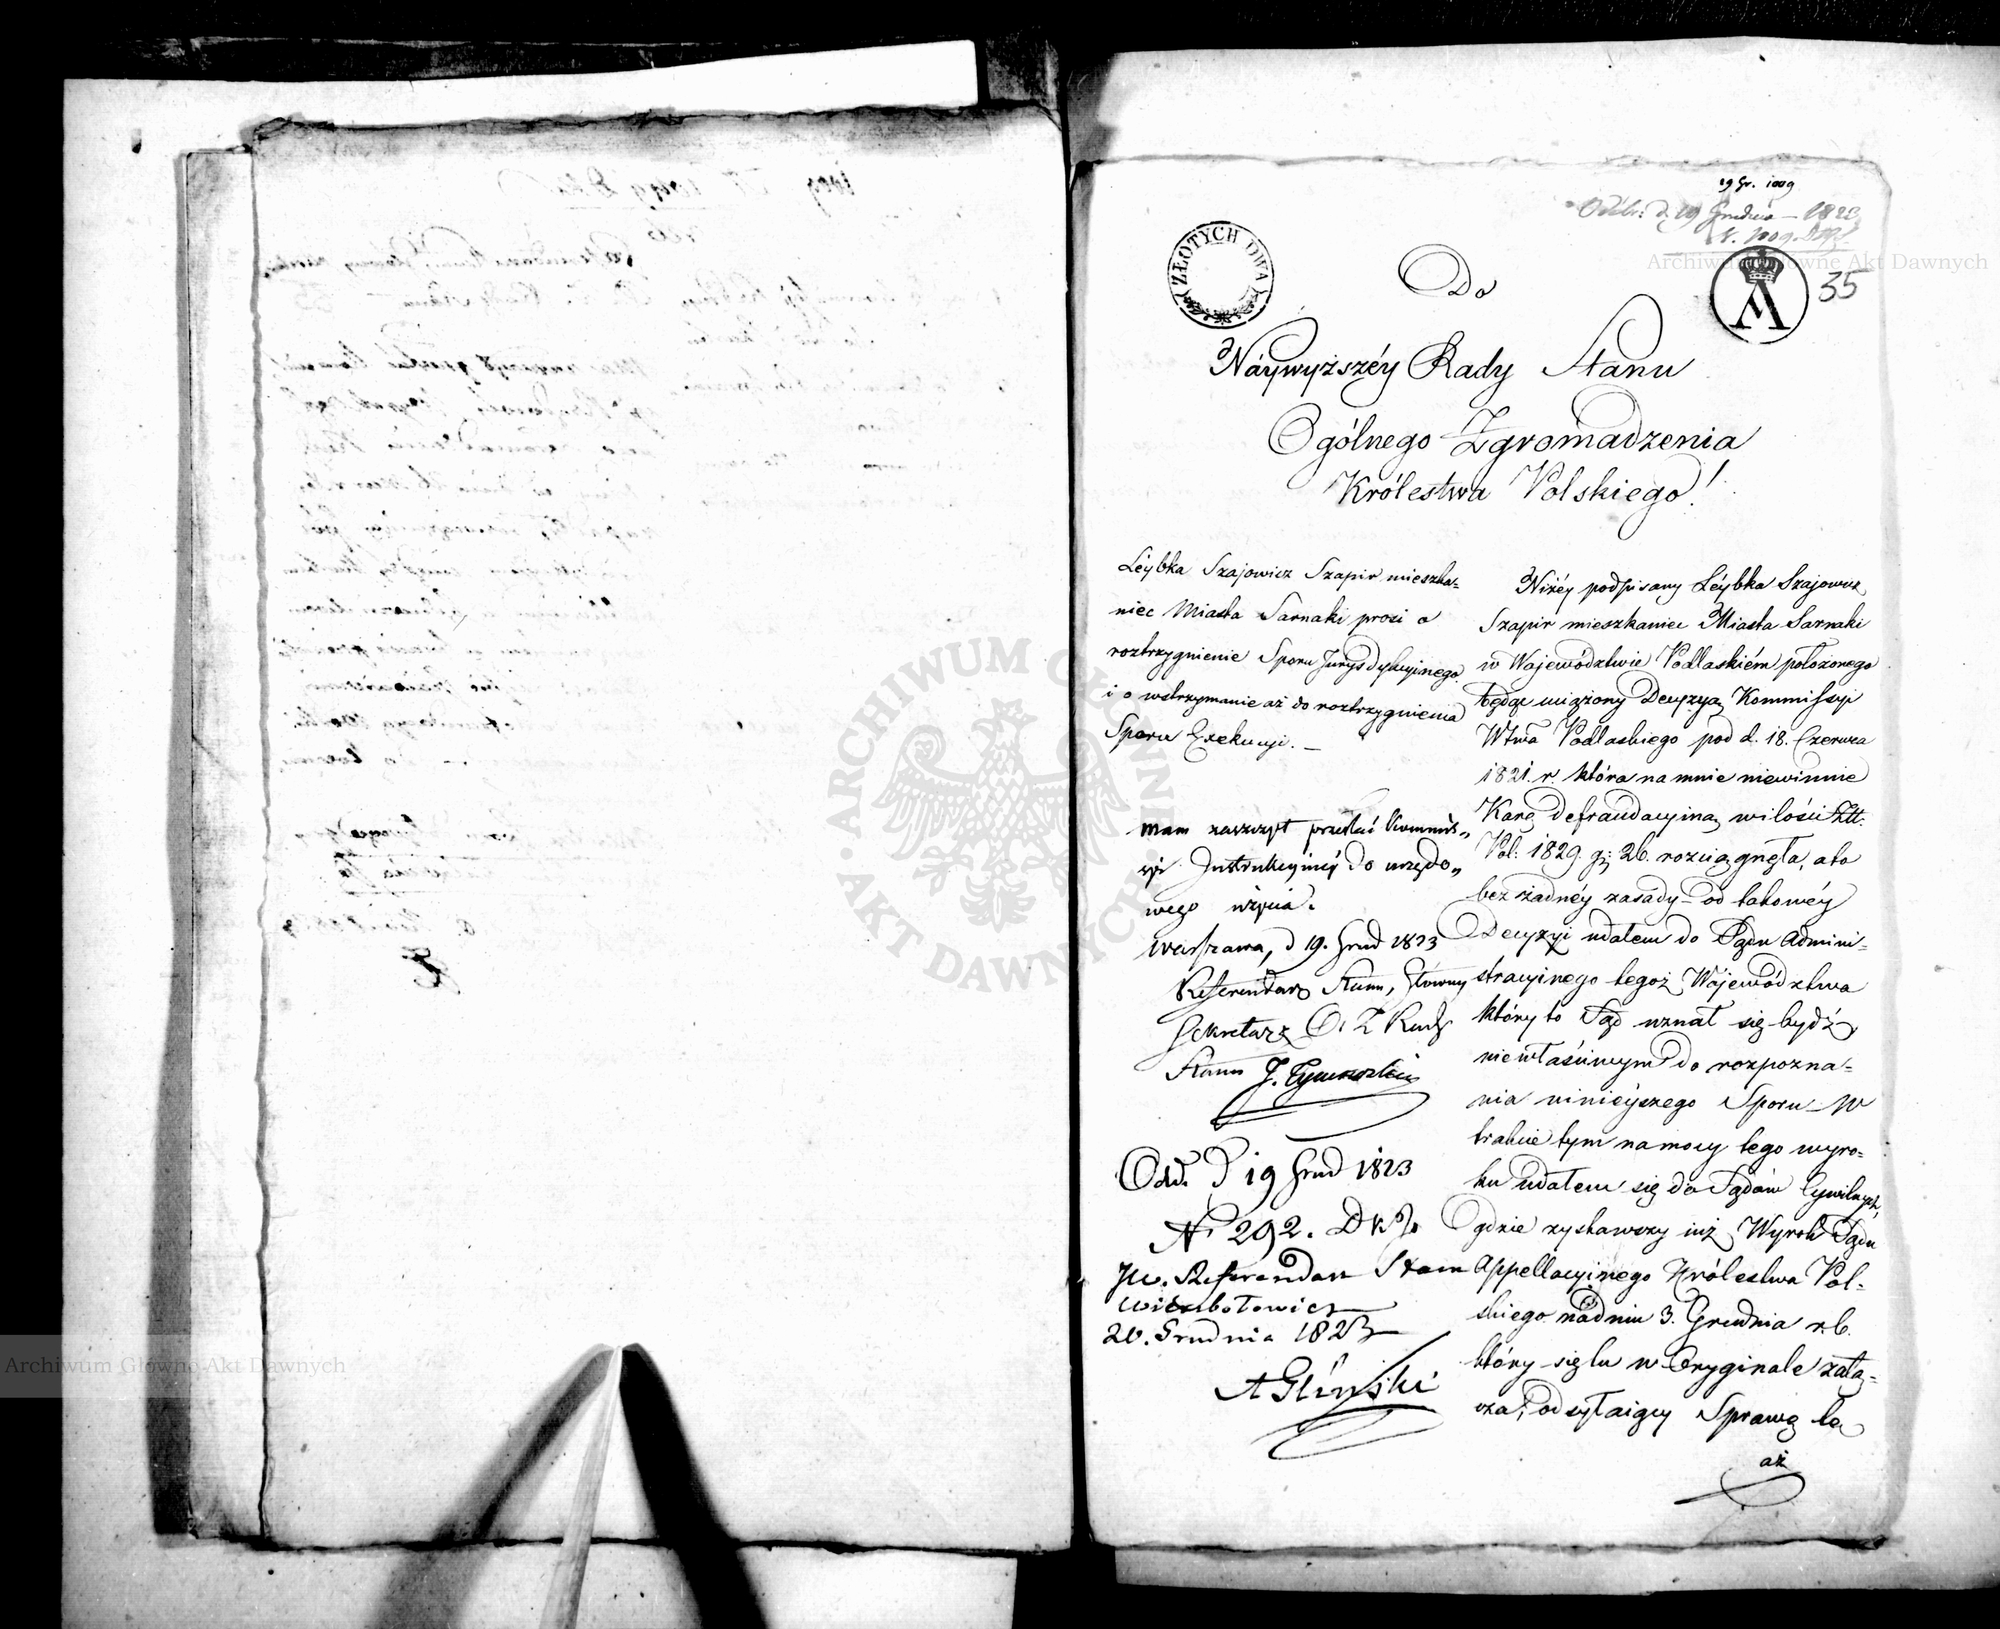 19 Gr. 1009
Odebr: d. 19 Grudnia – 1823
N. 1009.
35
ZŁOTYCH DWA
Do
Náywyższéy Rady Stanu
Ogólnego Zgromadzenia
Królestwa Polskiego!
Léybka Szajowicz Szapir mieszka=
niec Miasta Sarnaki prosi o
roztrzygnienie Sporu Jurysdykcyinego
i o wstrzymanie aż do roztrzygnienia
Sporu Exekucyi. —
mam zaszczyt przesłać Kommis„
syi Instrukcyinéy do urzędo„
wego użycia.
Warszawa, d 19. Grud 1823
Referendarz Stanu, Główny
Sekretarz O. Z Rady
Stanu J. Tymowski
Odd. d 19 Grud 1823
N. 292.
JW. Referendarz Stanu
Wierzbołowicz
20. Grudnia 1823
A Gliński
Niżéy podpisany Léybka Szajowicz
Szapir mieszkaniec Miasta Sarnaki
w Wojewódxtwie Podlaskiém położonego
będąc uciążony Decyzyą Kommissyi
Wtwa Podlaskiego pod d. 18. Czerwca
1821. r. która na mnie niewinnie
Karę defraudacyiną w ilości Złł.
Pol: 1829. g: 26. rozciągnęła, a to
bez żadnéy zasady – od takowéy
Decyzyi udałem do Sądu Admini=
stracyinego tegoż Wojewódxtwa
który to Sąd uznał się bydź
niewłaściwym do rozpozna=
nia ninieyszego Sporu – W
trakcie tym na mocy tego wyro=
ku udałem się do Sądów Cywilnych,
gdzie zyskawszy iuż Wyrok Sądu
Appellacyinego Królestwa Pol=
skiego nádniu 3. Grudnia r.b.
który się tu w Oryginale załą=
cza, odsyłaiący Sprawę tę
aż
ARCHIWUM GŁÓWNE AKT DAWNYCH
Archiwum Główne Akt Dawnych
Archiwum Główne Akt Dawnych